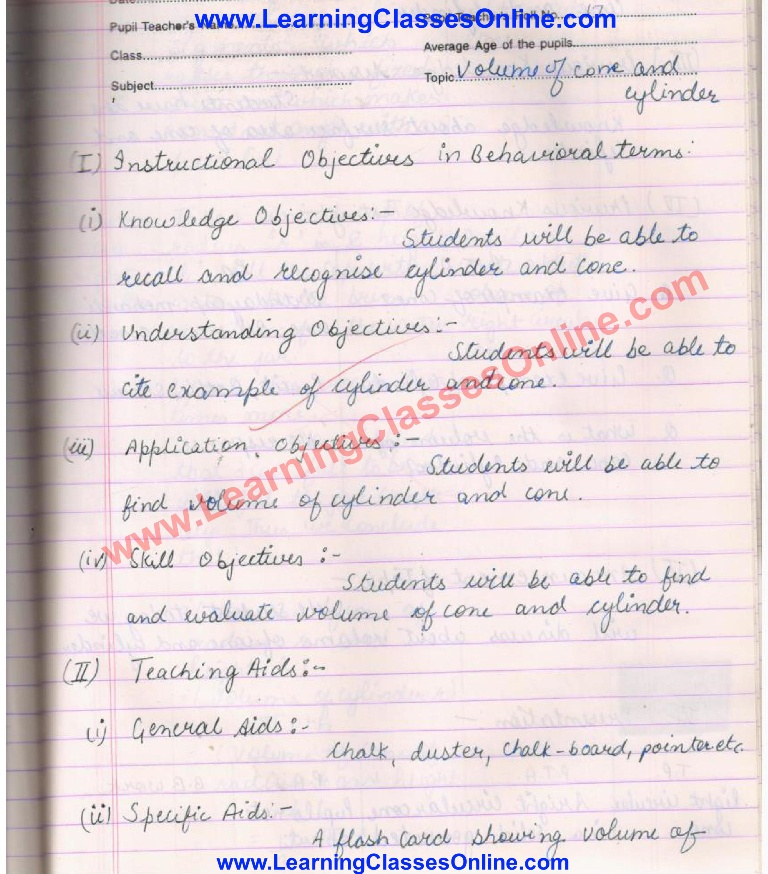 www.LearningClassesOnline.com
Pupil Teacher's Name
Class
Average Age of the pupils
Subject
Topic Volume of cone and
cylinder
(I) Instructional Objectives in Behavioral terms:
(i) Knowledge Objectives:-
Students will be able to
recall and recognise cylinder and cone.
(ii) Understanding Objectives:-
Students will be able to
cite example of cylinder and cone.
(iii) Application Objectives:-
Students will be able to
find volume of cylinder and cone.
www.LearningClassesOnline.com
(iv) Skill Objectives:-
Students will be able to find
and evaluate volume of cone and cylinder.
(II) Teaching Aids:-
(i) General Aids:-
Chalk, duster, chalk-board, pointer etc.
(ii) Specific Aids:-
A flash card showing volume of
www.LearningClassesOnline.com